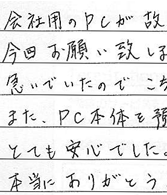 会社用のPCが故
今回お願い致しま
急いでいたので こち
また、PC本体を預
とても安心でした。
本当にありがとう